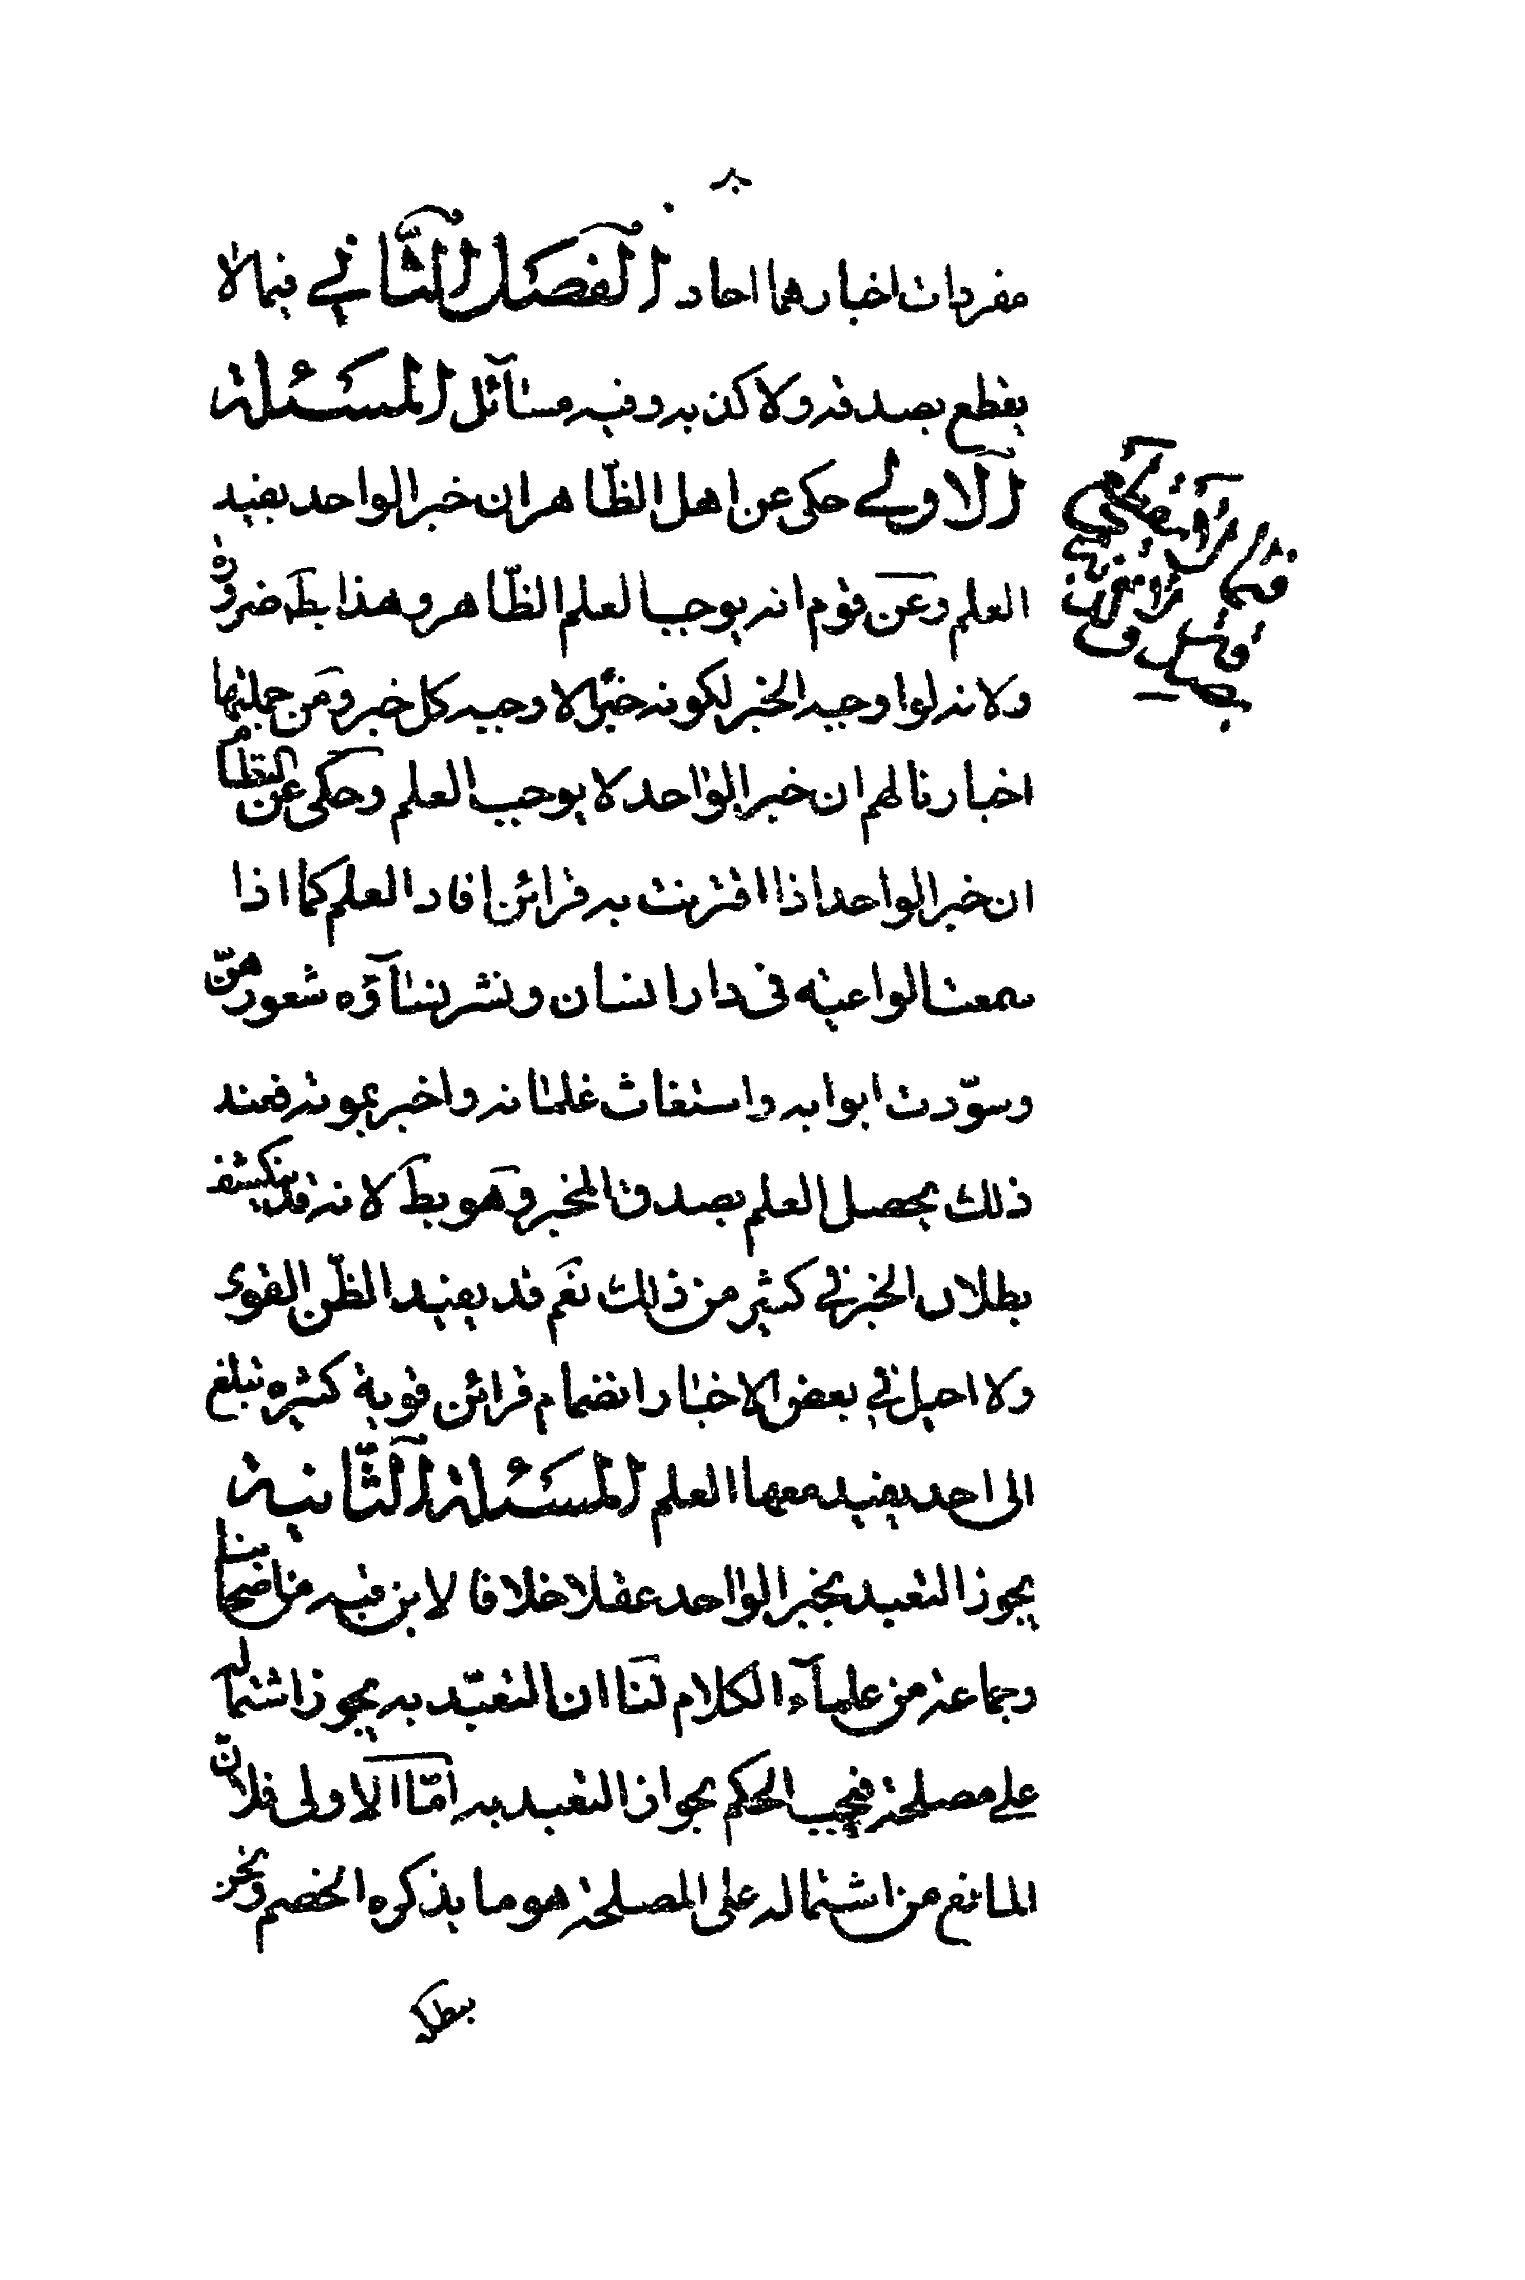 مفردات اخبارهما احاد الفصل الثاني فيما لا
يقطع بصدقه ولا كذبه وفيه مسآئل المسئلة
الاولي حكى عن اهل الظّاهر ان خبر الواحد يفيد
العلم وعن قوم انه يوجب العلم الظّاهر وهذا بط ضرورة
ولانه لو اوجبه الخبر لكونه خبرًا لاوجبه كل خبر ومن جملتها
اخبارنا لهم ان خبر الواحد لا يوجب العلم وحكى عن النظام
ان خبر الواحد اذا اقترنت به قرائن افاد العلم كما اذا
سمعنا الواعيه في دار انسان ونشر نسآؤه شعورهنّ
وسوّدت ابوابه واستغاث غلمانه واخبر بموته فعند
ذلك يحصل العلم بصدق المخبر وهو بط لانه قد ينكشف
بطلان الخبر في كثير من ذلك نعم قد يفيد الظّن القوى
ولا احيل في بعض الاخبار انضمام قرائن قوية كثيره تبلغ
الى احد يفيد معها العلم المسئلة الثّانية
يجوز التعبد بخبر الواحد عقلا خلافا لابن قبه من اصحابنا
وجماعة من علمآء الكلام لنا ان التعبّد به يجوز اشتماله
على مصلحة فيجب الحكم بجواز التعبد به امّا الاولى فلانّ
المانع من اشتماله على المصلحة هو ما يذكره الخصم ونحن